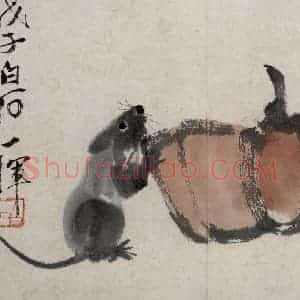 戊子白石一揮
Shufaziliao.com